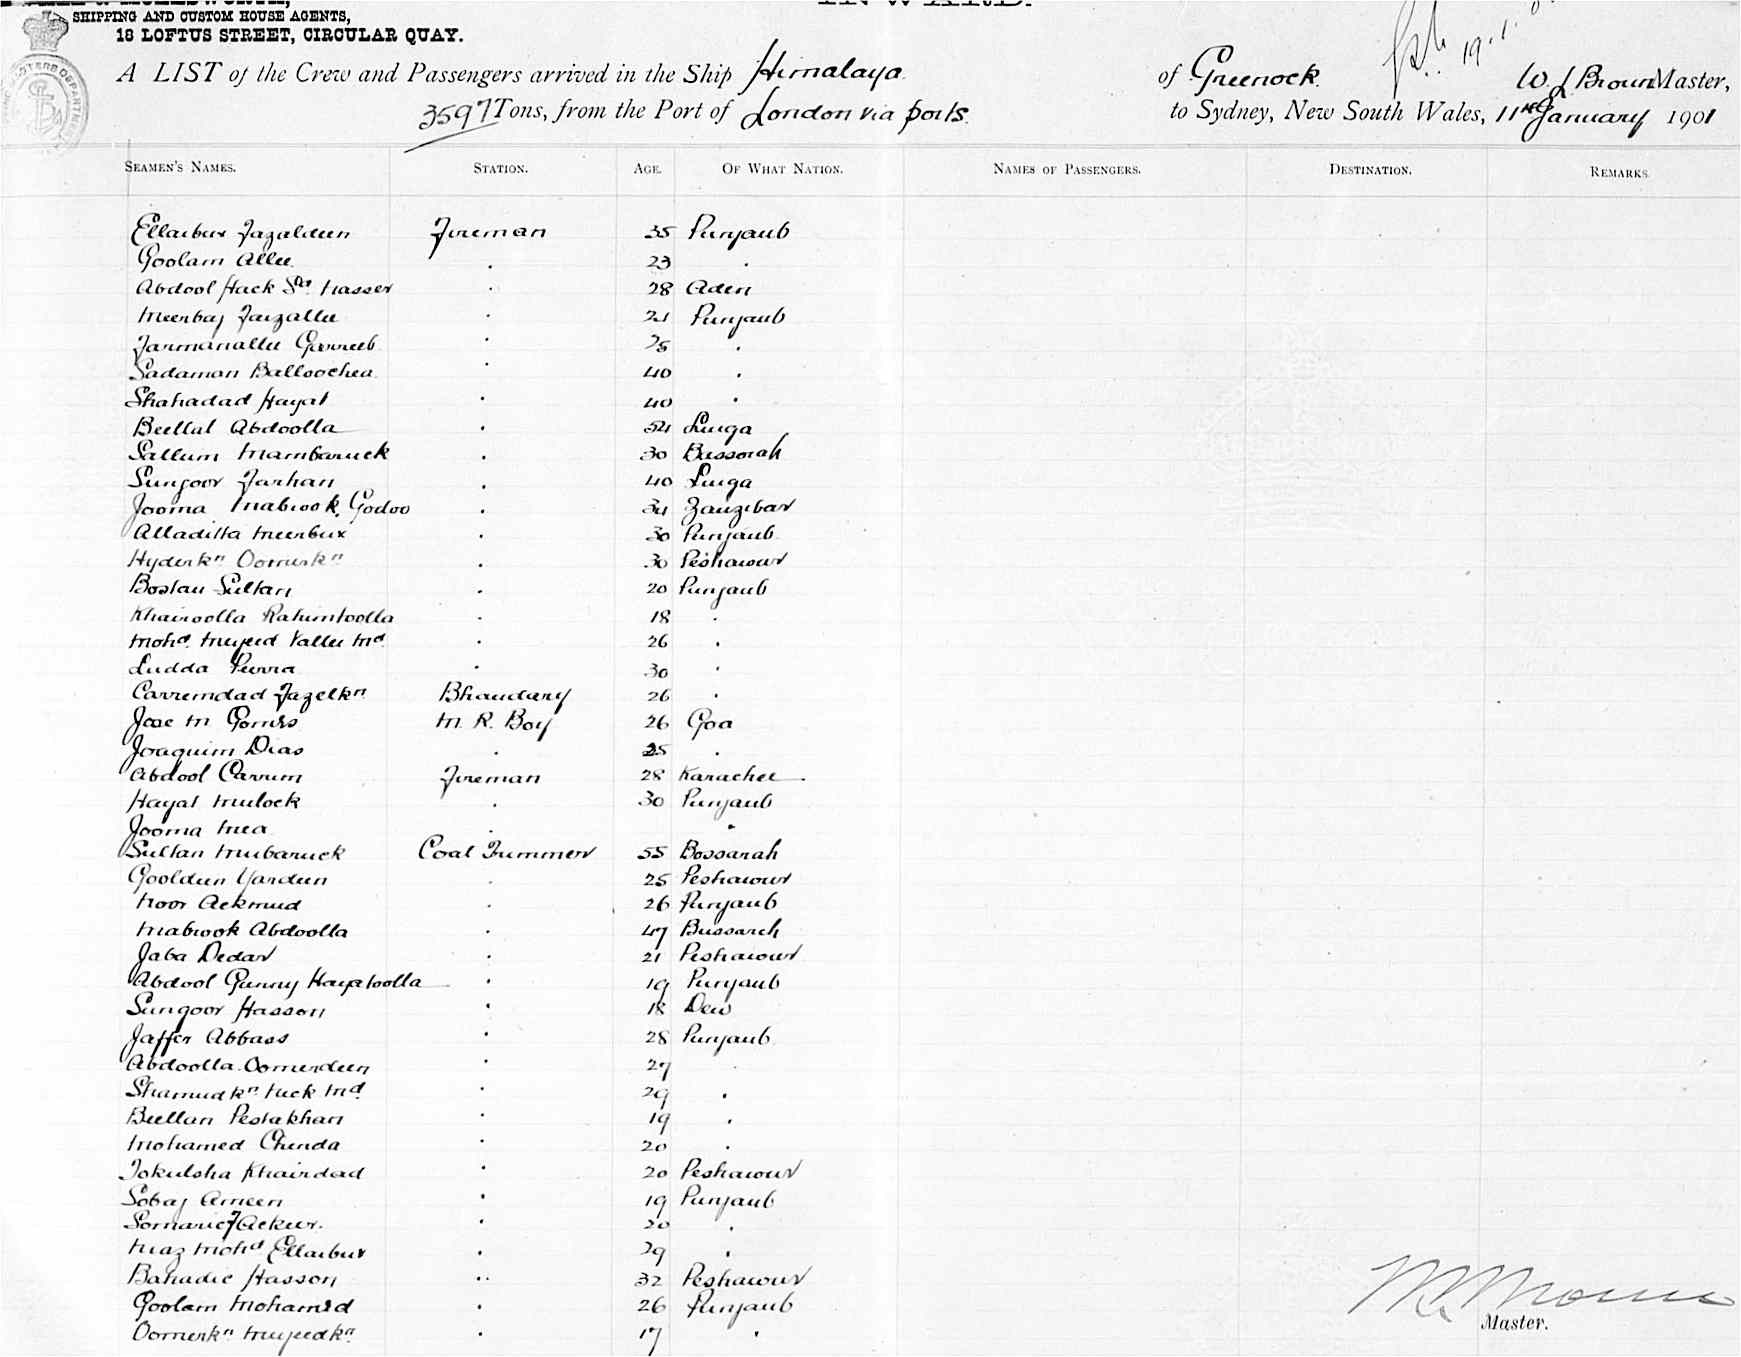 SHIPPING AND CUSTOM HOUSE AGENTS,
18 LOFTUS STREET, CIRCULAR QUAY.
A LIST of the Crew and Passengers arrived in the Ship Himalaya of Greenock W. L. Brown Master,
3597 Tons, from the Port of London via ports to Sydney, New South Wales, 11th January 1901
SEAMEN'S NAMES. STATION. AGE. OF WHAT NATION. NAMES OF PASSENGERS. DESTINATION. REMARKS.
Ellaibux Fazaldeen Fireman 35 Punjaub
Goolam Allee . 23 .
Abdool Hack Sd. Nasser . 28 Aden
Meerbaj Faizallee . 21 Punjaub
Farmanallee . .
Sadaman Balloochea . 40 .
Shahadad Hayat . 40 .
Beellal Abdoolla . 54 Linga
Sallum Mambaruck . 30 Bussorah
Sungoor Farhan . 40 Linga
Jooma Mabrook Godoo . 34 Zanzibar
Alladitta Meerbux . 30 Punjaub
Hyderkn Oomerkn . 30 Peshawur
Bostan Sultan . 20 Punjaub
Khairoolla Rahimtoolla . 18 .
Mohd. Vallee Md. . 26 .
Ludda . 30 .
Carremdad Fazelkn Bhandary 26 .
Jose M Gomes M. R. Boy 26 Goa
Joaquim Dias . 25 .
Abdool Carrim Fireman 28 Karachee
Hayat Mulock . 30 Punjaub
Jooma Mea . .
Sultan Mubaruck Coal Trimmer 55 Bossarah
Gooldeen Yardeen . 25 Peshawur
Noor Ackmud . 26 Punjaub
Mabrook Abdoolla . 47 Bussarah
Jaba Dedar . 21 Peshawur
Abdool Gunny Hayatoolla . 19 Punjaub
Sungoor Hasson . 18 Dew
Jaffer Abbass . 28 Punjaub
Abdoolla Oomerdeen . 27
Shamudkn Nuck Md. . 29 .
Beellan Pestakhan . 19 .
Mohamed Chenda . 20 .
Tokulsha Khairdad . 20 Peshawur
Sobaj Ameen . 19 Punjaub
. 20 .
Niaz Mohd Ellaibux . 29 .
Bahadie Hasson . 32 Peshawur
Goolam Mohamed . 26 Punjaub
Oomerkn Mujeedkn . 17 .
Master.